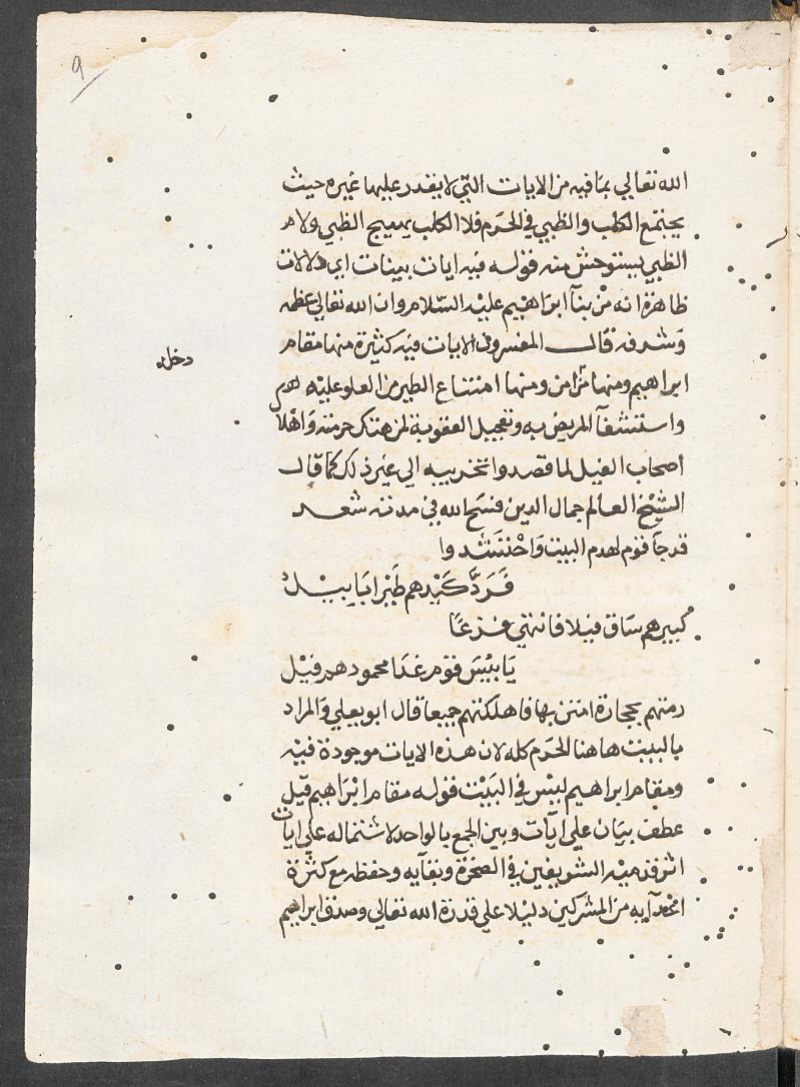 ٩
الله تعالي بما فيه من الايات التي لا يقدر عليها غيره حيث
يجتمع الكلب والظبي في الحرم فلا الكلب يهيج الظبي ولا
الظبي يستوحش منه قوله فيه ايات بينات اي دلالات
ظاهرة انه من بنآ ابراهيم عليه السلام وان الله تعالي عظمه
وشرفه قال المفسرون الايات فيه كثيرة منها مقام
ابراهيم ومنها من امن ومنها امتناع الطير من العلو عليه
دخله
واستشفآ المريض به وتعجيل العقوبة لمن هتك حرمته واهلا
اصحاب الفيل لما قصدوا تخريبه الي غير ذلك كما قال
الشيخ العالم جمال الدين فسح الله في مدته شعر
قد جآ قوم لهدم البيت واحتشدوا
فرد كيدهم طير ابابيل
كبيرهم ساق فيلا فانثني فزعا
يا بيس قوم غدا محمودهم فيل
رمتهم بحجارة امتن بها فاهلكتهم جميعا قال ابو يعلي والمراد
بالبيت هاهنا الحرم كله لان هذه الايات موجودة فيه
ومقام ابراهيم ليس في البيت قوله مقام ابراهيم قيل
عطف بيان علي ايآت وبين الجمع بالواحد لاشتماله علي ايات
اثر قدميه الشريفين في الصخرة وبقآيه وحفظه مع كثرة
اعدآيه من المشركين دليلا علي قدرة الله تعالي وصدق ابراهيم